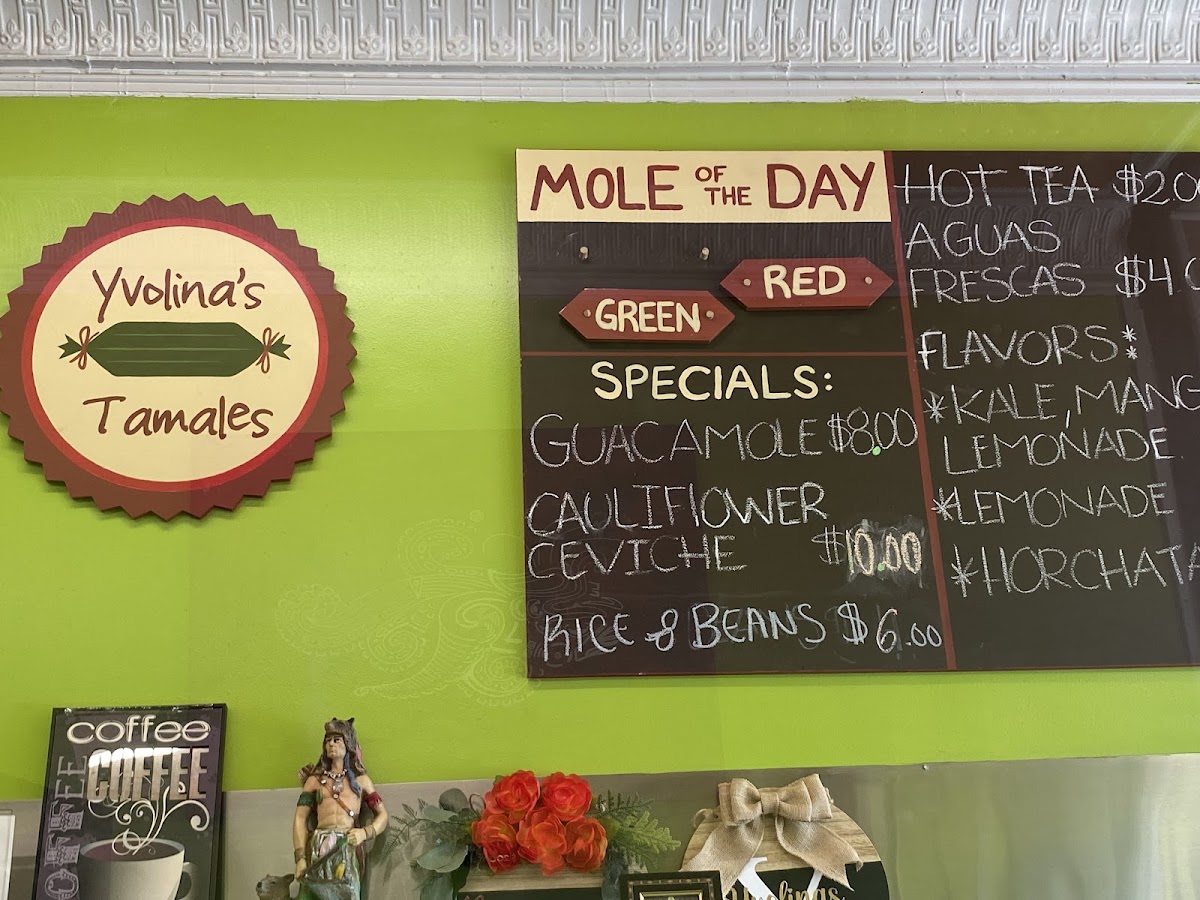 Yvolina's
Tamales
MOLE OF THE DAY
GREEN
RED
SPECIALS:
GUACAMOLE $8.00
CAULIFLOWER
CEVICHE $10.00
RICE & BEANS $6.00
HOT TEA $2.0
AGUAS
FRESCAS $4.
FLAVORS:
*KALE, MANG
LEMONADE
*LEMONADE
*HORCHATA
coffee
COFFEE
COFFEE